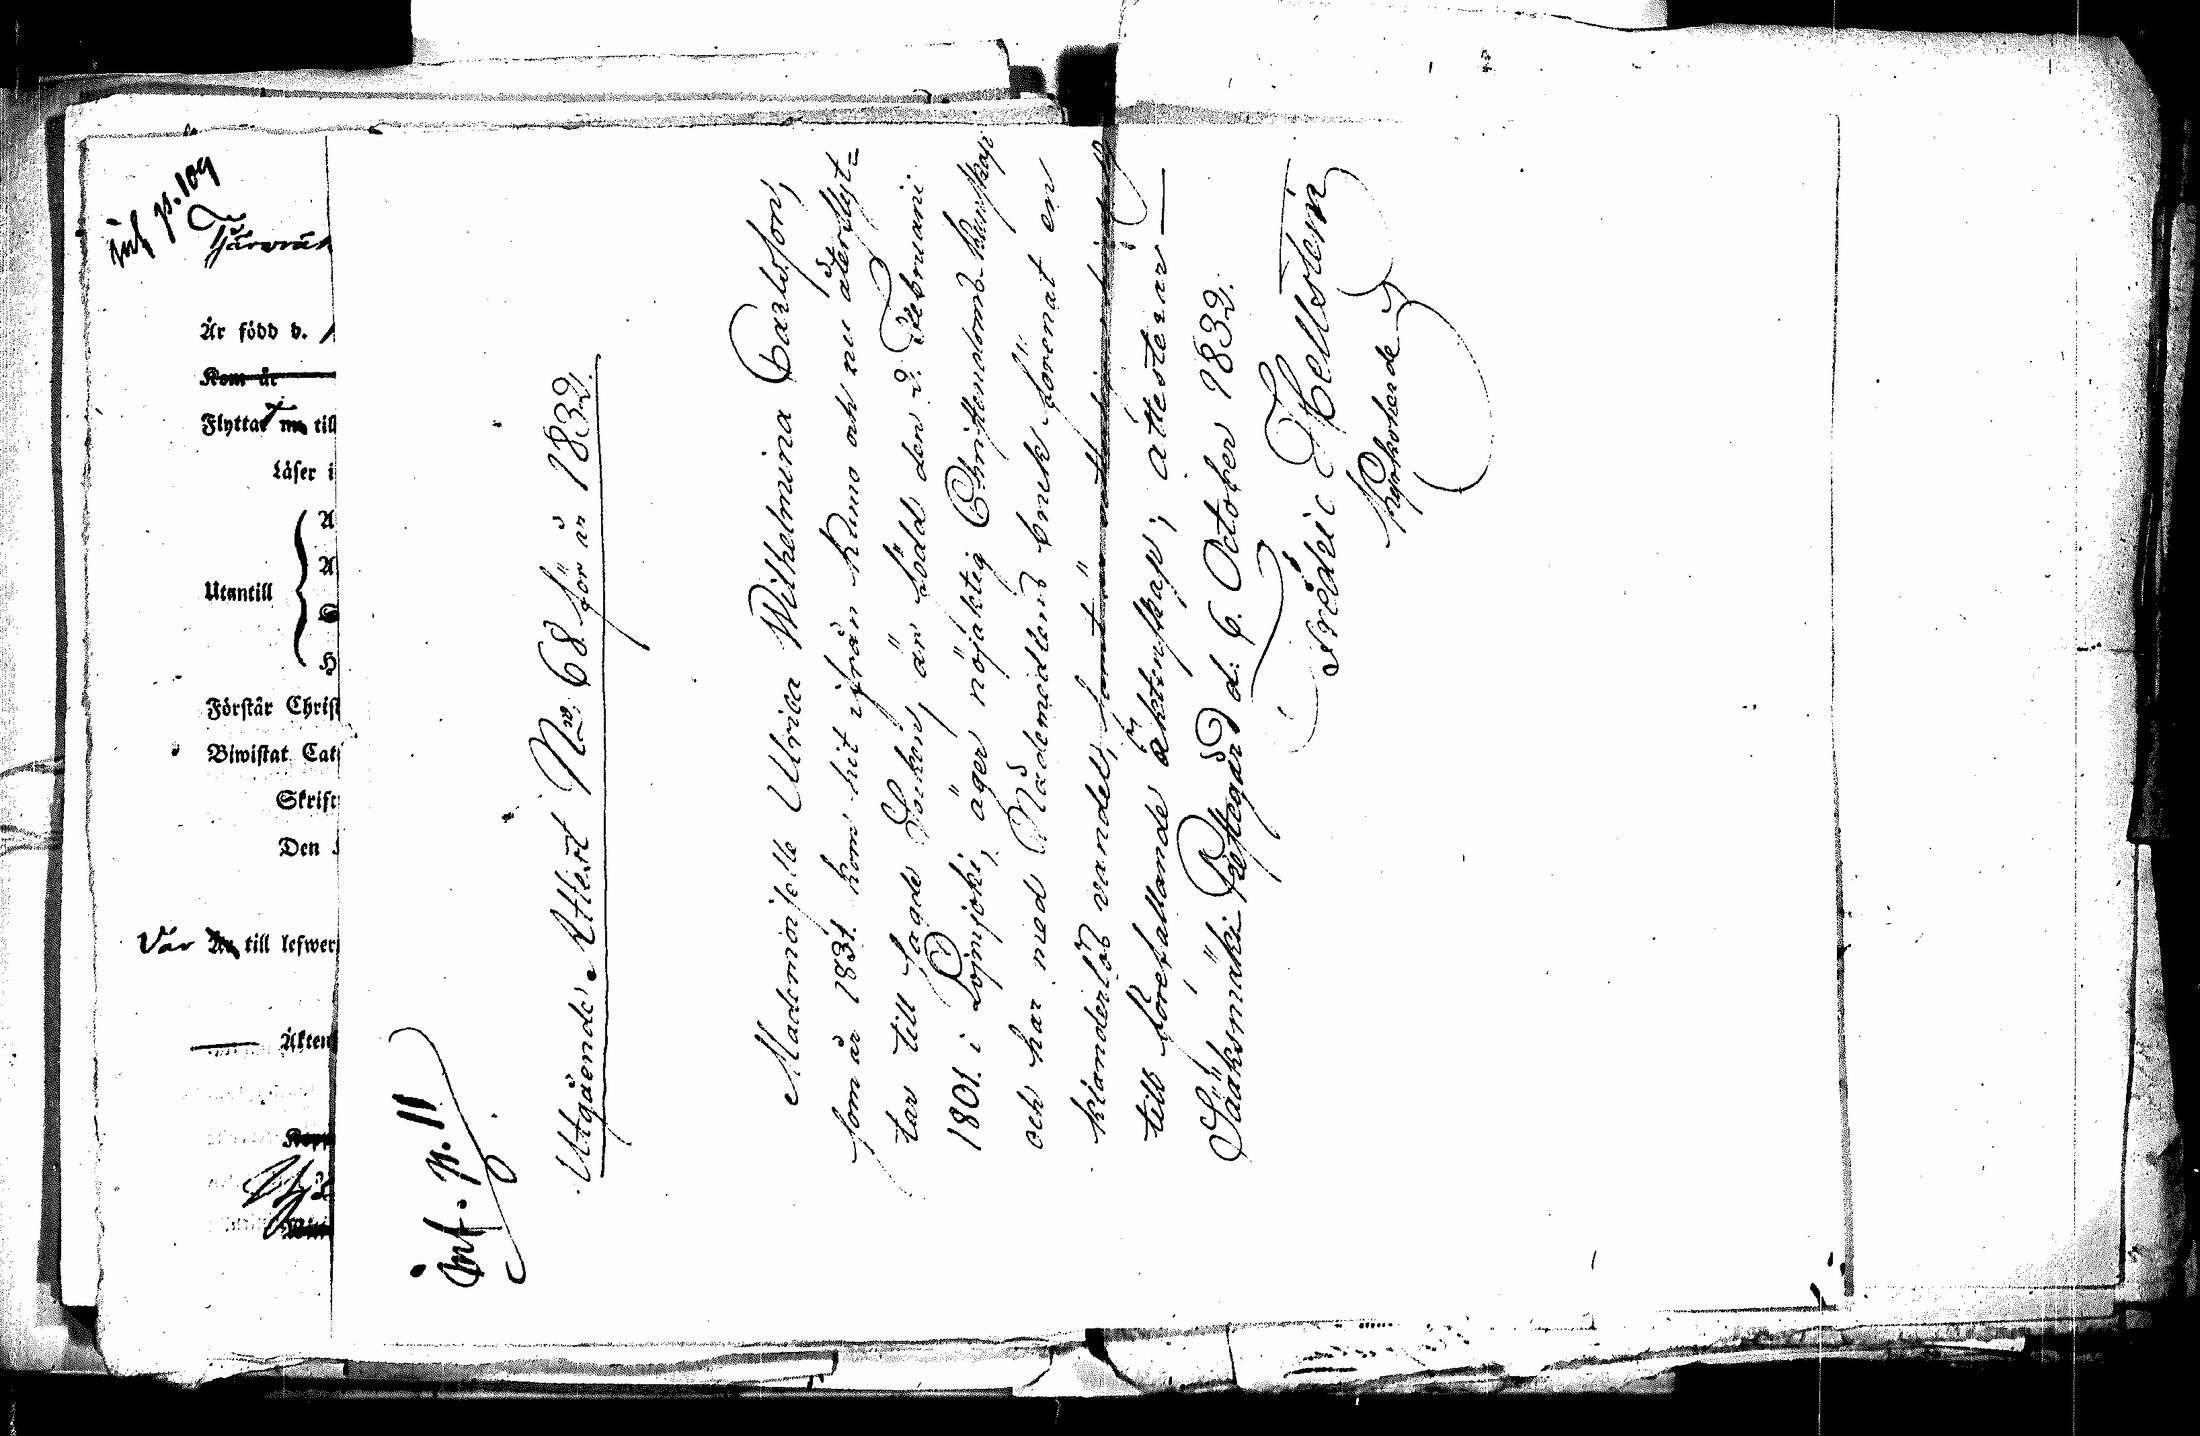 inf p. 109
Är född d.
Kom år
Flyttat nu till
Läser i
A
A
Utantill
S
H
Förstår Christ
Biwistat Cat
Skrift
Den
Var Är till lefwer
Äkten
inf. p. 11
Utgående Attest No 68 för år 1832.
Mademoiselle Ulrica Wilhelmina Carlsson,
som år 1831. kom hit ifrån Kumo och nu återflyt=
tar till sagde Socken, är född den 2. Februarii
1801. i Loimjoki, äger nöjaktig Christendoms-kunskap
och har med Nådemedlens bruk förenat en
klanderlös vandel, samt är
till förefallande äktenskap; attesterar
Sääksmäki Prestegård d. 6. October 1832.
Fredric Hellsten
Kyrkoherde